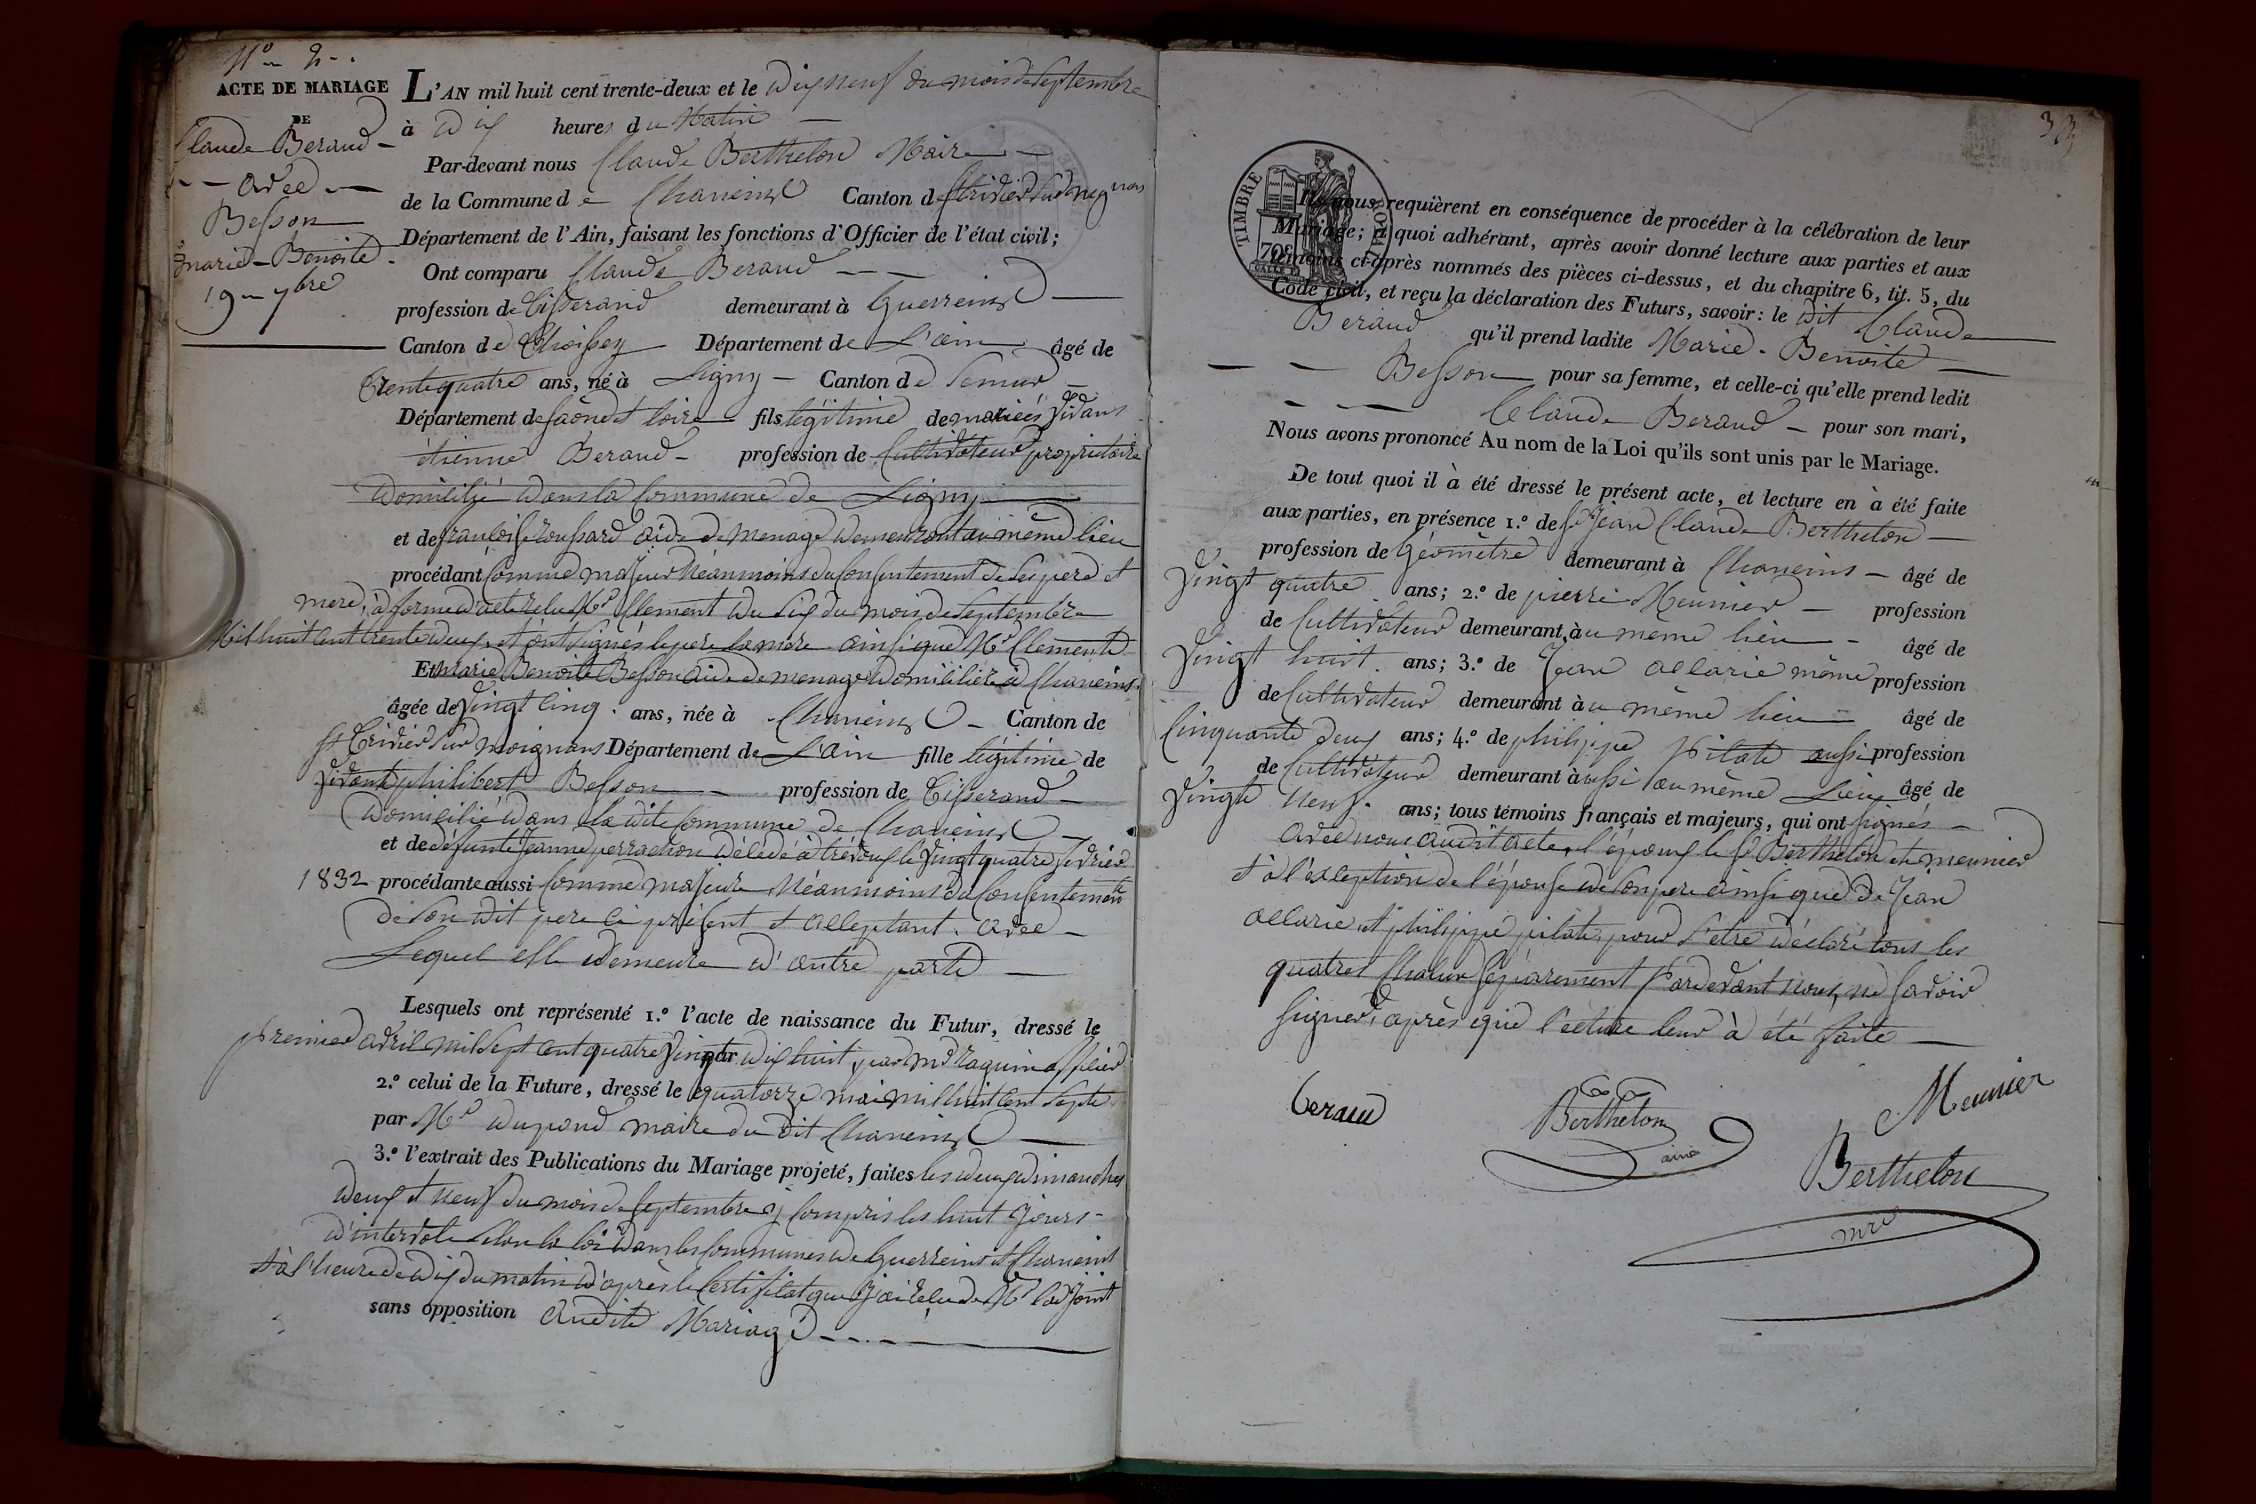 N.º 2
ACTE DE MARIAGE
DE
Claude Beraud
avec
Besson
marie-Benoite
19 7bre
L'AN mil huit cent trente-deux et le dix neuf du mois de Septembre
à dix heures du Matin
Par-devant nous Claude Berthelon Maire
de la Commune de Chaneins Canton de
Département de l'Ain, faisant les fonctions d'Officier de l'état civil;
Ont comparu Claude Beraud
profession de Tisserand demeurant à Guerreins
Canton de Thoissey Département de L'ain âgé de
trente quatre ans, né à Ligny Canton de Semur
Département de Saône et loire fils légitime de mariés vivans
étienne Beraud profession de Cultivateur propriétaire
domicilié dans la Commune de Ligny
et de francoise aide de menage demeurant au même lieu
procédant comme majeur Néanmoins du consentement de ses père et
mere, à forme d'acte relu Mr Clement du dix du mois de Septembre
Mil huit cent trente deux, et ont signés le pere la mere ainsi que Mr Clement
Et Marie Benoite Besson aide de menage domiciliée à Chaneins
âgée de vingt cinq ans, née à Chaneins Canton de
St Trivier Sur moignans Département de L'ain fille légitime de
vivant philibert Besson profession de Tisserand
domicilié dans la dite commune de Chaneins
et de défunte Jeanne perrachon décédé à trévoux le vingt quatre fevrier
1832 procédante aussi comme majeure Néanmoins du Consentement
de son dit pere ci présent et acceptant. avec
Lequel elle demeure d'autre part
Lesquels ont représenté 1.º l'acte de naissance du Futur, dressé le
premier avril mil sept cent quatre vingt dix huit, par mr officier
2.º celui de la Future, dressé le quatorze mai mil huit cent Sept
par Mr dupond maire du dit Chaneins
3.º l'extrait des Publications du Mariage projeté, faites les deux dimanches
deux et neuf du mois de Septembre y compris les huit jours
d'intervale selon la loi dans les Communes de Guerreins et Chaneins
et à l'heure de dix du matin d'après le Certificat que j'ai de Mr l'adjoint
sans opposition audit Mariage
33
TIMBRE ROYAL
70c
Ils nous requièrent en conséquence de procéder à la célébration de leur
Mariage; à quoi adhérant, après avoir donné lecture aux parties et aux
témoins ci-après nommés des pièces ci-dessus, et du chapitre 6, tit. 5, du
Code civil, et reçu la déclaration des Futurs, savoir: le dit Claude
Beraud qu'il prend ladite Marie-Benoite
Besson pour sa femme, et celle-ci qu'elle prend ledit
Claude Beraud pour son mari,
Nous avons prononcé Au nom de la Loi qu'ils sont unis par le Mariage.
De tout quoi il à été dressé le présent acte, et lecture en à été faite
aux parties, en présence 1.º de Sr Jean Claude Berthelon
profession de Géomètre demeurant à Chaneins âgé de
vingt quatre ans; 2.º de pierre Meunier profession
de Cultivateur demeurant au même lieu âgé de
vingt huit ans; 3.º de Jean allarie même profession
de Cultivateur demeurant au même lieu âgé de
Cinquante deux ans; 4.º de philippe pilate aussi profession
de Cultivateur demeurant aussi au même Lieu âgé de
vingt neuf ans; tous témoins français et majeurs, qui ont signés
avec nous audit acte, l'époux le Sr Berthelon et meunier
et à l'exception de l'épouse de son pere ainsi que de Jean
allarie et philippe pilate, pour l'être déclaré tous les
quatres Chacun séparement Pardevant nous, ne savoir
signer, après que lecture leur à été faite
beraud
Berthelon
ainé
Meunier
Berthelon
mre